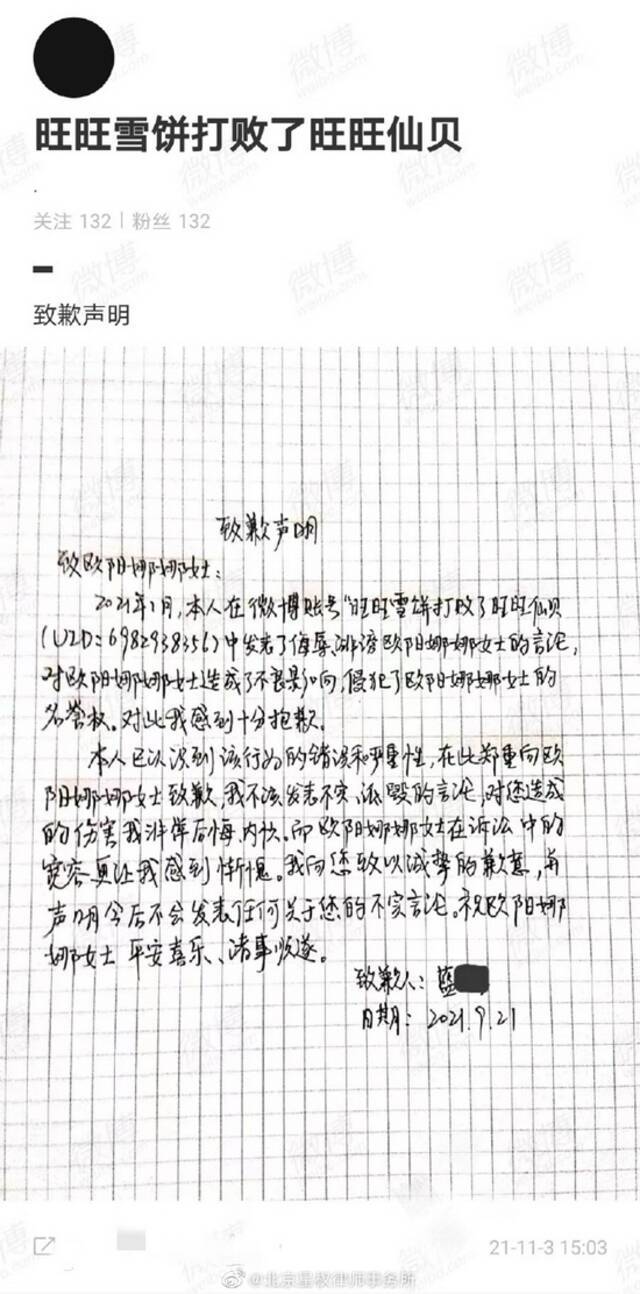 旺旺雪饼打败了旺旺仙贝
.
关注 132 | 粉丝 132
致歉声明
致歉声明
致欧阳娜娜女士：
2021年1月，本人在微博账号"旺旺雪饼打败了旺旺仙贝
(UID：6982938356)中发表了侮辱、诽谤欧阳娜娜女士的言论，
对欧阳娜娜女士造成了不良影响，侵犯了欧阳娜娜女士的
名誉权。对此我感到十分抱歉。
本人已认识到该行为的错误和严重性，在此郑重向欧
阳娜娜女士致歉，我不该发表不实、诋毁的言论，对您造成
的伤害我深作后悔、内疚。而欧阳娜娜女士在诉讼中的
宽容更让我感到惭愧。我向您致以诚挚的歉意，并
声明今后不会发表任何关于您的不实言论。祝欧阳娜
娜女士平安喜乐、诸事顺遂。
致歉人：蓝
日期：2021.9.21
21-11-3 15:03
@北京星权律师事务所
微博
weibo.com